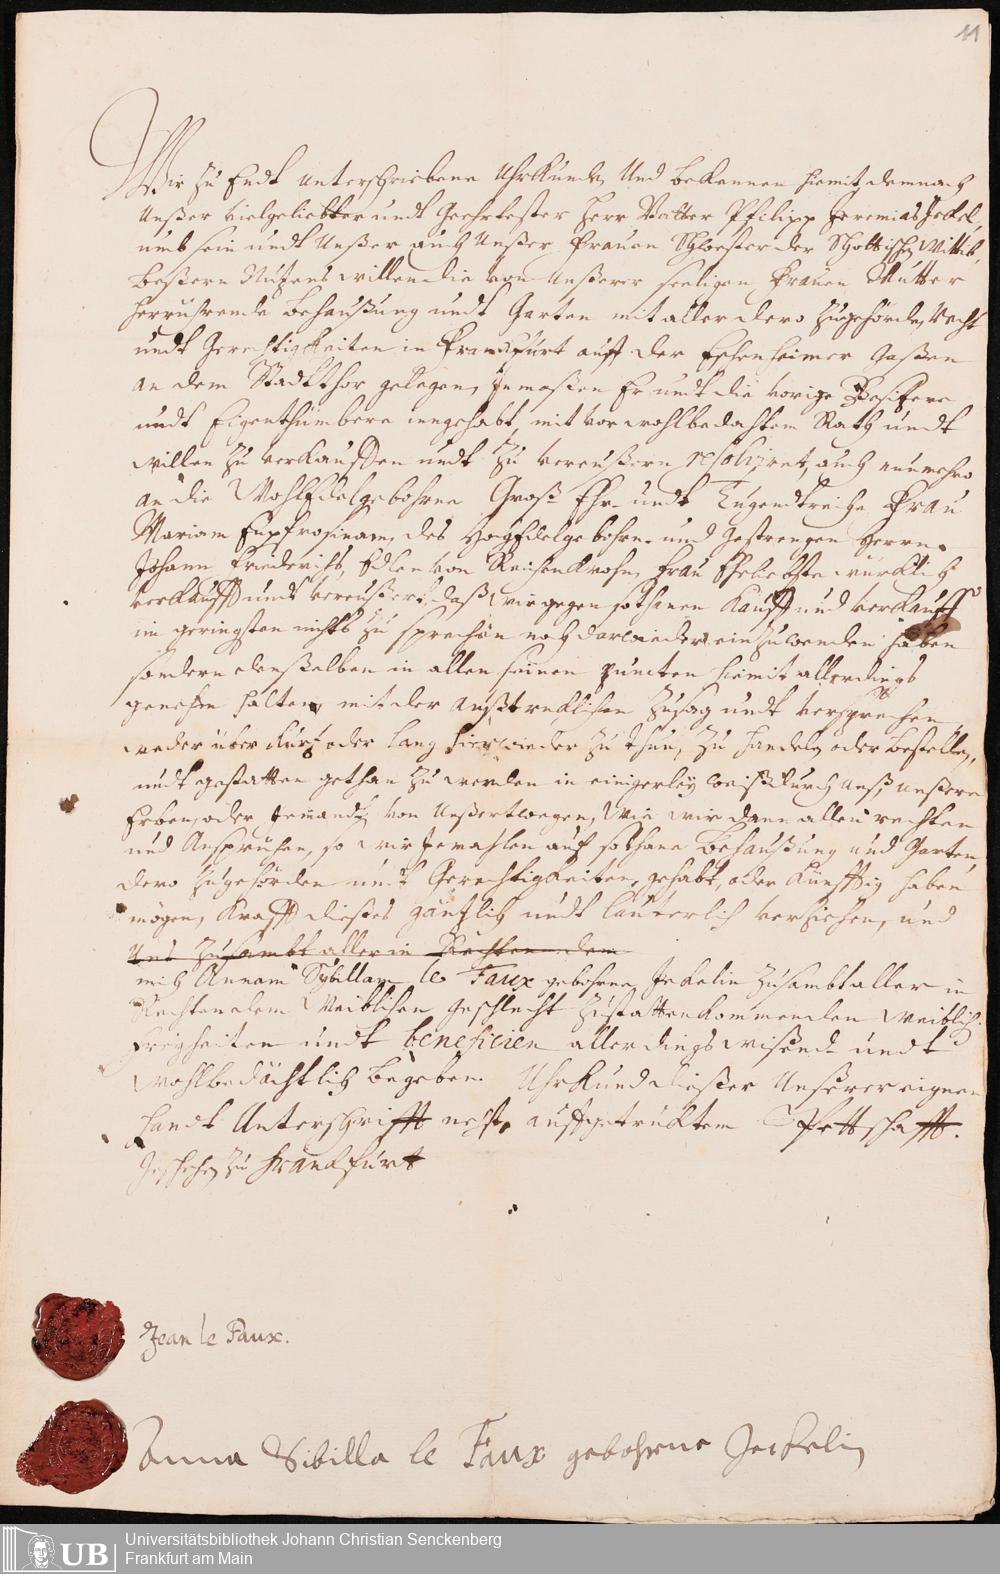 11
Wir zu Endt unterschriebene Uhrkunden Und Bekennen hiemit, demnach
Unßer vielgeliebter undt Geehrtester Herr Vatter Philipp Jeremias Jeckel,
umb sein undt Unßer auch Unßer Frauen Schwester der Wittib,
beßern Nutzens willen die von Unßerer seeligen Frauen Mutter
herruhrende Behaußung undt Garten mit aller dero Zugehörde, Recht
undt Gerechtigkeiten in Franckfurt auff der Eschenheimer Gaßen
an dem Stadtthor gelegen, inmaßen Er undt die vorige Besitzere
undt Eigenthümbere inngehabt, mit vorwohlbedachtem Rath undt
willen zu verkauffen undt zu vereußern resolviret, auch nunmehro
an die WohlEdelgebohrne Groß Ehr- undt Tugendtreiche Frau
Mariam Euphrosinam, des HochEdelgebohrn- und Gestrengen Herrn
Johann Friederichs, Edlen von Frau Eheliebste würcklich
verkaufft undt vereußert, daß wir gegen sothanen Kauff und verkauff
im geringsten nichts zu sprechen noch darwieder einzuwenden haben
sondern denselben in allen seinen puncten hiemit allerdings
genehm halten, mit der außtrücklichen Zusag undt versprechen
weder über kurtz oder lang hierwieder zu thun, zu handeln oder bestellen,
undt gestatten gethan zu werden in einigerley weiß durch Unß, Unßere
Erben, oder jemandt von Unßertwegen, Wie wir dann allen rechten
und Anspruchen, so wir jemahlen auf sothane Behaußung und Garten,
dero Zugehörden undt Gerechtigkeiten, gehabt, oder Künfftig haben
mögen, Krafft dieses gäntzlich undt lauterlich verziehen, und
Uns zusambt aller in Rechten dem
mich Annam Sybillam le Faux gebohrne Jeckelin zusambt aller in
Rechten dem Weiblichen Geschlecht zustatten kommenden weiblich.
Freyheiten undt beneficien allerdings wißend- undt
wohlbedächtlich begeben. Uhrkund dießer Unßerer eignen
Handt Unterschrifft nechst auffgetrücktem Pettschafft.
Geschehen zu Franckfurt
Jean le Faux.
Anna Sibilla le Faux gebohrne Jeckelin
UB
Universitätsbibliothek Johann Christian Senckenberg
Frankfurt am Main